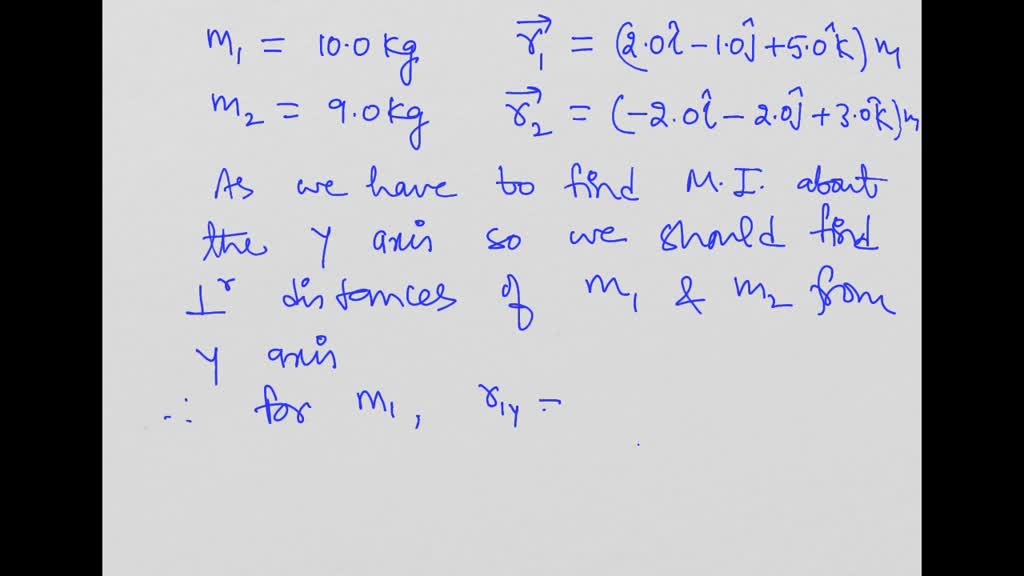 m₁ = 10.0 kg r⃗₁ = (2.0î - 1.0ĵ + 5.0k̂) m
m₂ = 9.0 kg r⃗₂ = (-2.0î - 2.0ĵ + 3.0k̂) m
As we have to find M.I. about
the Y axis so we should find
⊥ʳ distances of m₁ & m₂ from
Y axis
∴ for m₁, r₁y =